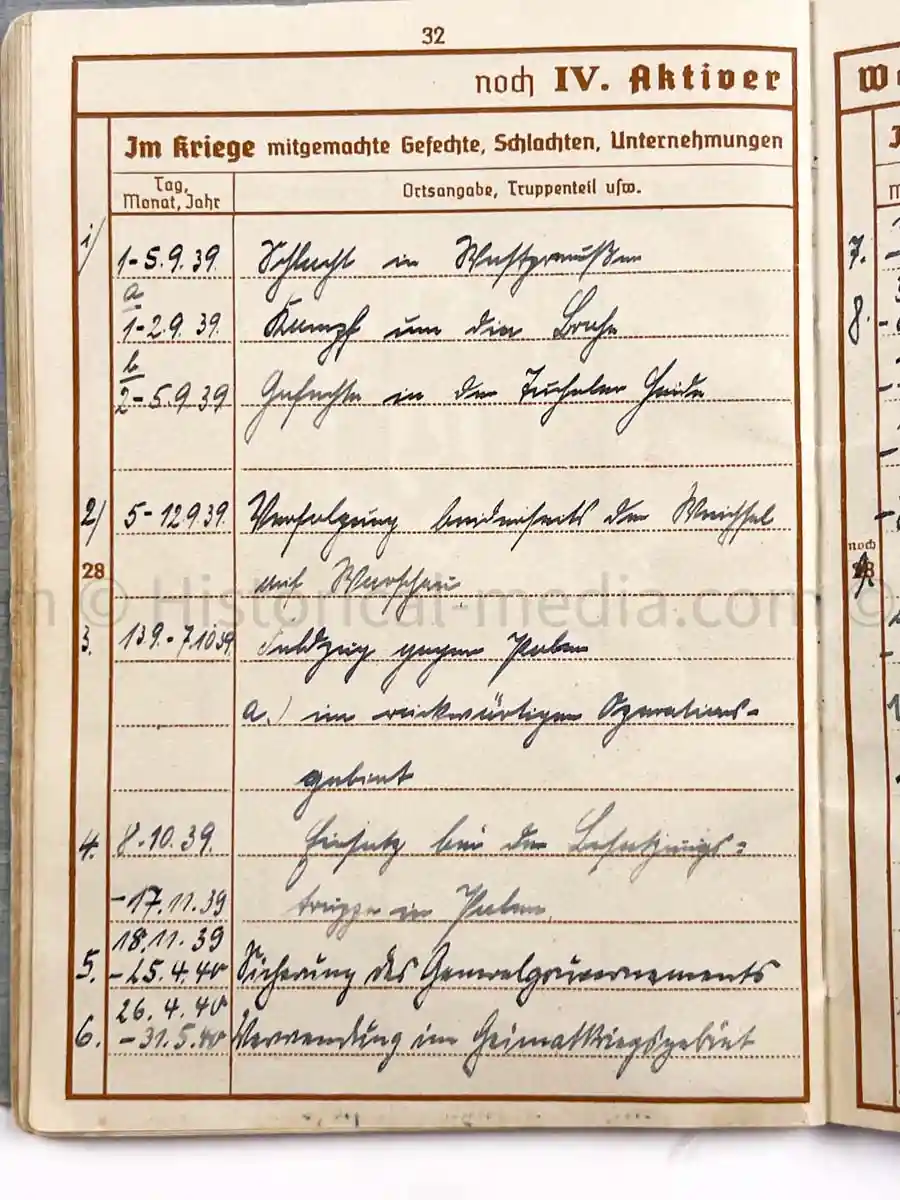 32
noch IV. Aktiver
Im Kriege mitgemachte Gefechte, Schlachten, Unternehmungen
Tag, Monat, Jahr
Ortsangabe, Truppenteil usw.
1) 1-5.9.39. Schlacht in Westpreußen
a
1-2.9.39. Kampf um die Brahe
b
2-5.9.39 Gefechte in der Tucheler Heide
2) 5-12.9.39. Verfolgung beiderseits der Weichsel
28 auf Warschau
3. 13.9.-7.10.39. Feldzug gegen Polen
a.) im rückwärtigen Operations-
gebiet
4. 8.10.39. Einsatz bei der Besatzungs-
-17.11.39 truppe in Polen
18.11.39
5. -25.4.40 Sicherung des Generalgouvernements
26.4.40
6. -31.5.40 Verwendung im Heimatkriegsgebiet
7.
8.
noch
© Historical-media.com ©